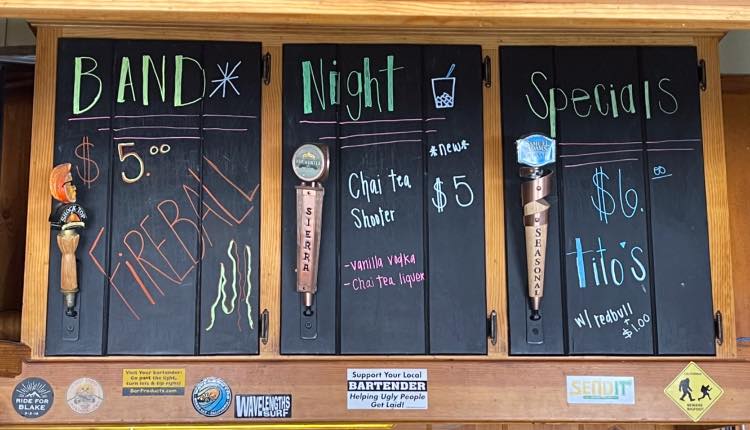 BAND*
$5.00
FIREBALL
SHOCK TOP
Night
*new*
Chai tea
Shooter
$5
-vanilla vodka
-Chai tea liquer
SIERRA
Specials
$6.00
tito's
w/ redbull
+$1.00
SEASONAL
RIDE FOR
BLAKE
Visit Your bartender:
Go past the light,
turn left & right
BarProducts.com
WAVELENGTHS
SURF
Support Your Local
BARTENDER
Helping Ugly People
Get Laid!
SENDIT
BIGFOOT